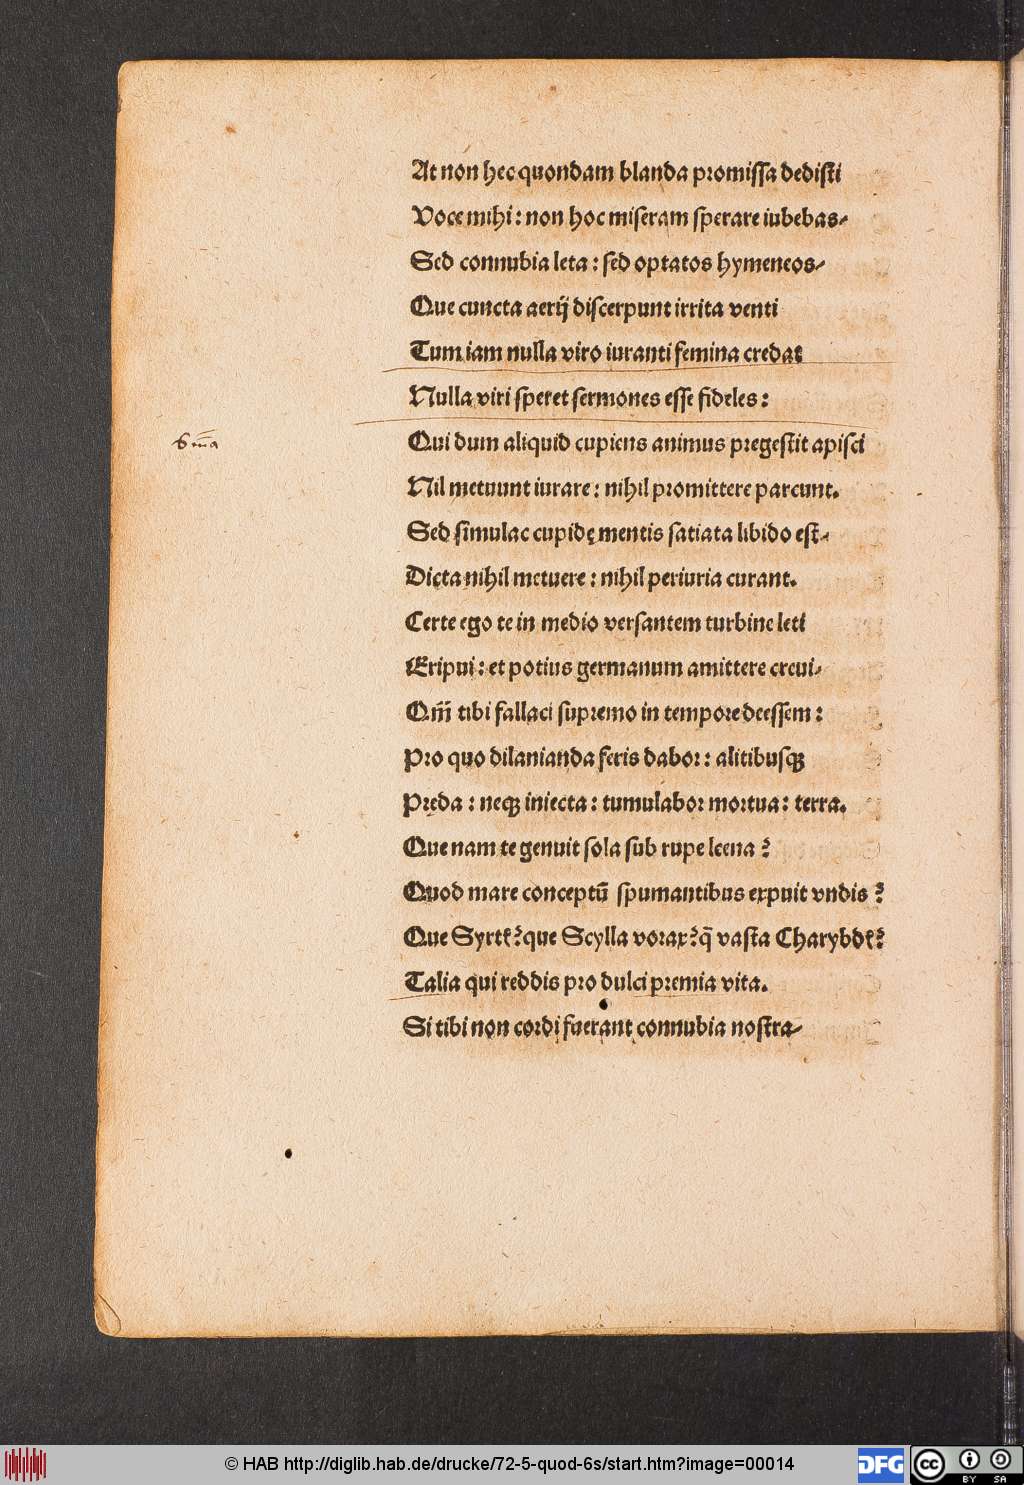 At non hec quondam blanda promissa dedisti
Voce mihi: non hoc miseram sperare iubebas⸗
Sed connubia leta: sed optatos hymeneos⸗
Que cuncta aerij discerpunt irrita venti
Tum iam nulla viro iuranti femina credat
Nulla viri speret sermones esse fideles:
Qui dum aliquid cupiens animus pregestit apisci
Nil metuunt iurare: nihil promittere parcunt.
Sed simulac cupidę mentis satiata libido est⸗
Dicta nihil metuere: nihil periuria curant.
Certe ego te in medio versantem turbine leti
Eripui: et potius germanum amittere creui⸗
Qm̄ tibi fallaci supremo in tempore deessem:
Pro quo dilanianda feris dabor: alitibusqꝫ
Pręda: neqꝫ iniecta: tumulabor mortua: terra.
Que nam te genuit sola sub rupe leena?
Quod mare conceptū spumantibus expuit vndis?
Que Syrtꝭ? que Scylla vorax? q̄ vasta Charybdꝭ?
Talia qui reddis pro dulci premia vita.
Si tibi non cordi fuerant connubia nostra⸗
© HAB http://diglib.hab.de/drucke/72-5-quod-6s/start.htm?image=00014
DFG
cc
BY SA